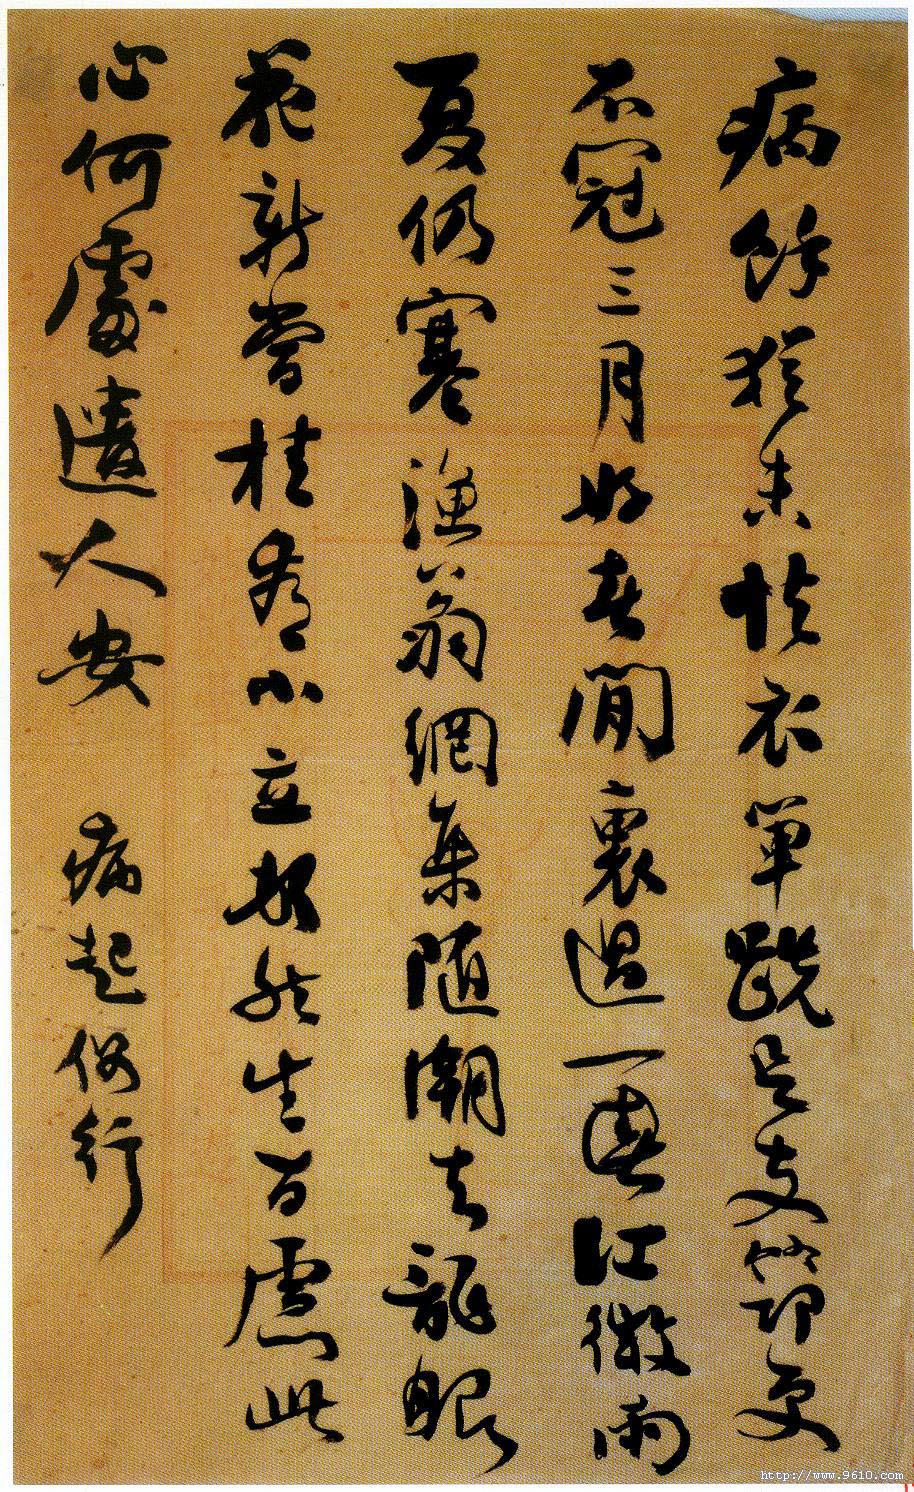 病餘猶未怯衣單跣足支笻更
不冠三月好春閒裏過一江微雨
夏仍寒漁翁網集隨潮去龍眼
花新當桂看小立然生百慮此
心何處遣人安 病起偶行
http://www.9610.com